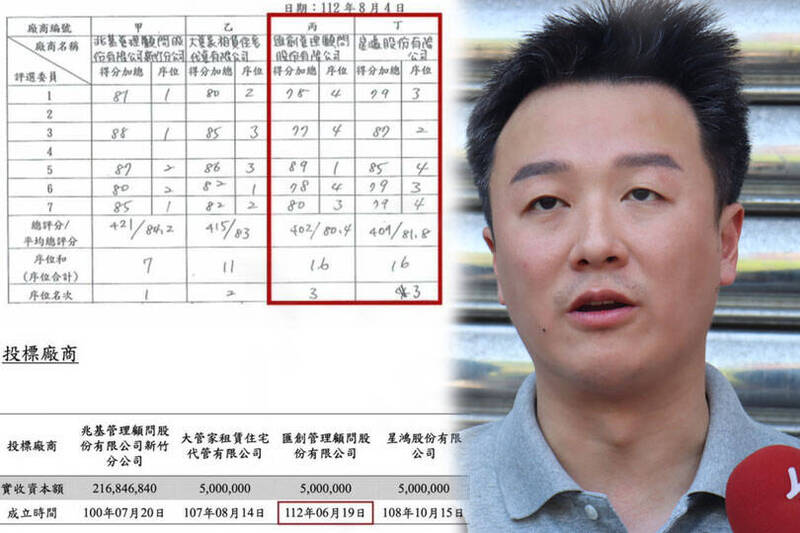 日期：112年8月4日
廠商編號 甲 乙 丙 丁
廠商名稱 兆基管理顧問股份有限公司新竹分公司 大管家租賃住宅代管有限公司 匯創管理顧問股份有限公司 星鴻股份有限公司
評選委員 得分加總 序位 得分加總 序位 得分加總 序位 得分加總 序位
1 81 1 80 2 78 4 79 3
2
3 88 1 85 3 77 4 87 2
4
5 87 2 86 3 89 1 85 4
6 80 2 82 1 78 4 79 3
7 85 1 82 2 80 3 79 4
總評分/
平均總評分 421/84.2 415/83 402/80.4 409/81.8
序位和
(序位合計) 7 11 16 16
序位名次 1 2 3 3
投標廠商
投標廠商 兆基管理顧問股份有限公司新竹分公司 大管家租賃住宅代管有限公司 匯創管理顧問股份有限公司 星鴻股份有限公司
實收資本額 216,846,840 5,000,000 5,000,000 5,000,000
成立時間 100年07月20日 107年08月14日 112年06月19日 108年10月15日